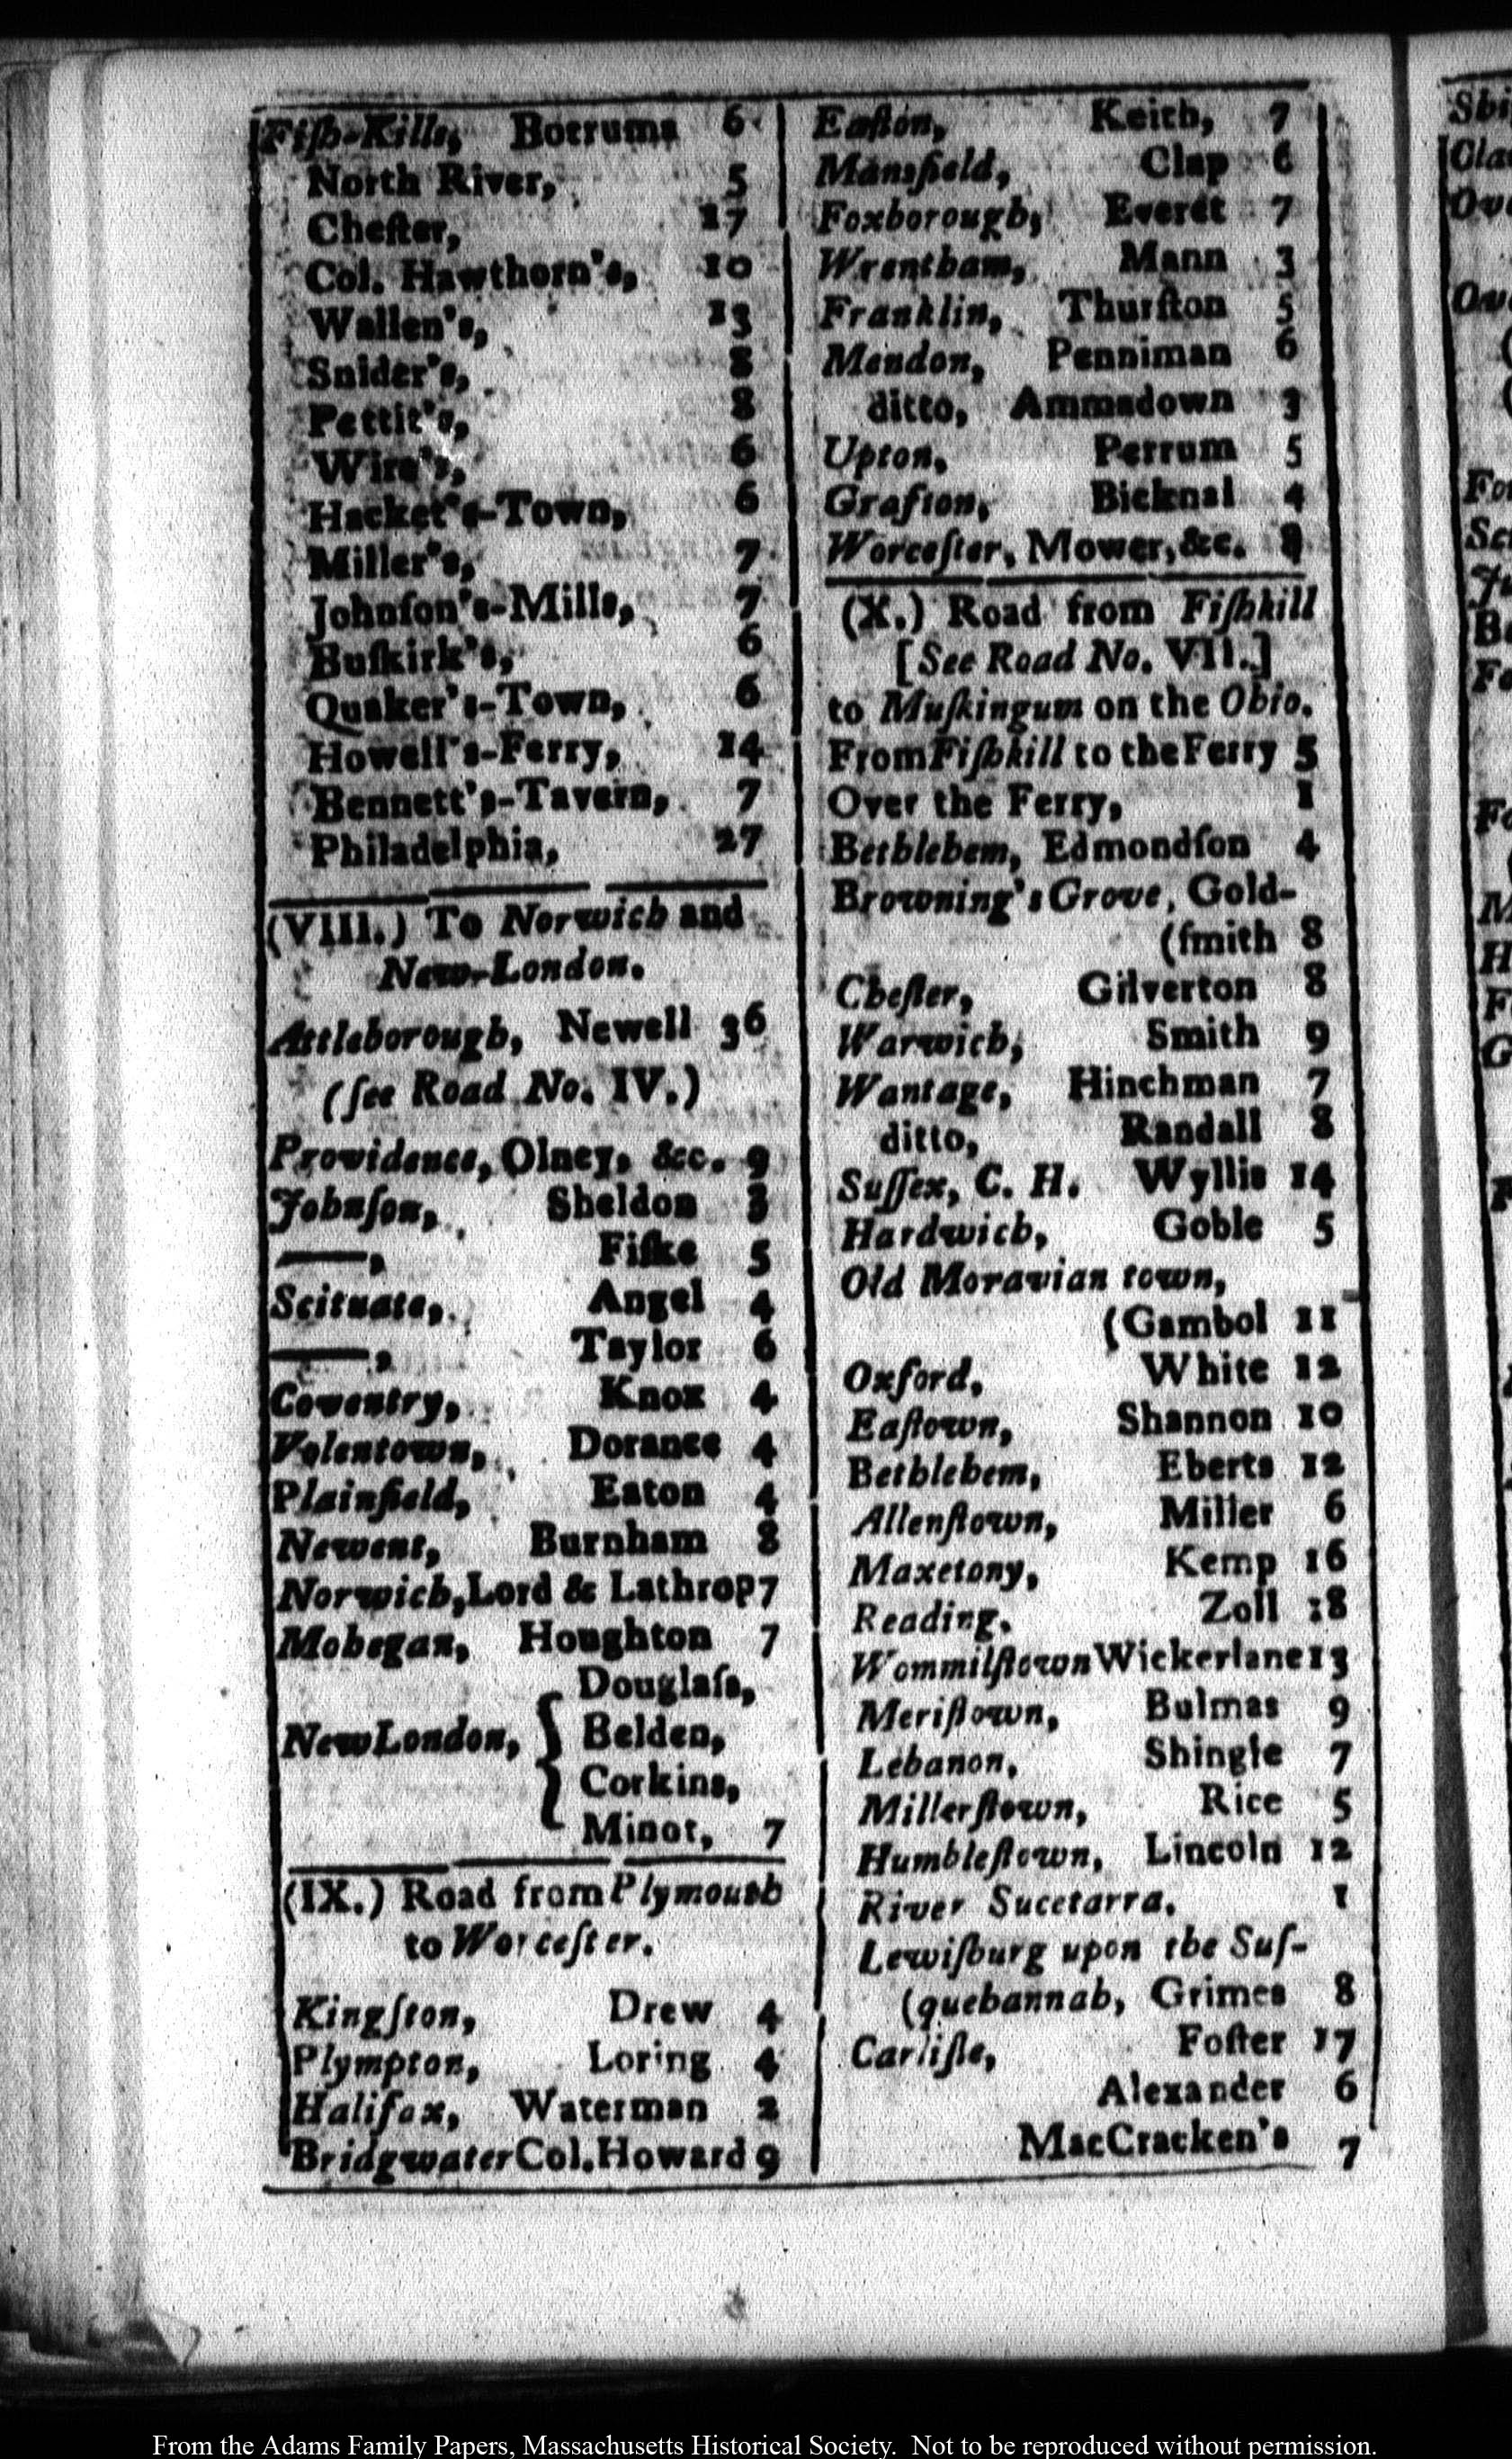 Fiſh-Kills, Botrums 6
North River, 5
Cheſter, 17
Col. Hawthorn's, 10
Wallen's, 13
Snider's, 8
Pettit's, 8
Wire's, 6
Hacket's-Town, 6
Miller's, 7
Johnſon's-Mills, 7
Buſkirk's, 6
Quaker's-Town, 6
Howell's-Ferry, 14
Bennett's-Tavern, 7
Philadelphia, 27
(VIII.) To Norwich and
New-London.
Attleborough, Newell 36
(ſee Road No. IV.)
Providence, Olney, &c. 9
Johnſon, Sheldon 3
——, Fiſke 5
Scituate, Angel 4
——, Taylor 6
Coventry, Knox 4
Volentown, Dorance 4
Plainfield, Eaton 4
Newent, Burnham 8
Norwich, Lord & Lathrop 7
Mohegan, Houghton 7
Douglaſs,
New London, { Belden,
Corkins,
Minot, 7
(IX.) Road from Plymouth
to Worceſter.
Kingſton, Drew 4
Plympton, Loring 4
Halifax, Waterman 2
Bridgwater Col. Howard 9
Eaſton, Keith, 7
Mansfield, Clap 6
Foxborough, Everet 7
Wrentham, Mann 3
Franklin, Thurſton 5
Mendon, Penniman 6
ditto, Ammadown 3
Upton, Perrum 5
Grafton, Bicknal 4
Worceſter, Mower, &c. 8
(X.) Road from Fiſhkill
[See Road No. VII.]
to Muſkingum on the Ohio.
From Fiſhkill to the Ferry 5
Over the Ferry, 1
Bethlehem, Edmondſon 4
Browning's Grove, Gold-
(ſmith 8
Cheſter, Gilverton 8
Warwich, Smith 9
Wantage, Hinchman 7
ditto, Randall 8
Suſſex, C. H. Wyllis 14
Hardwich, Goble 5
Old Moravian town,
(Gambol 11
Oxford, White 12
Eaſtown, Shannon 10
Bethlehem, Eberts 12
Allenſtown, Miller 6
Maxetony, Kemp 16
Reading, Zoll 18
Wommilſtown Wickerlane 13
Meriſtown, Bulmas 9
Lebanon, Shingle 7
Millerſtown, Rice 5
Humbleſtown, Lincoln 12
River Sucetarra. 1
Lewiſburg upon the Suſ-
(quehannah, Grimes 8
Carliſle, Foſter 17
Alexander 6
MacCracken's 7
From the Adams Family Papers, Massachusetts Historical Society. Not to be reproduced without permission.